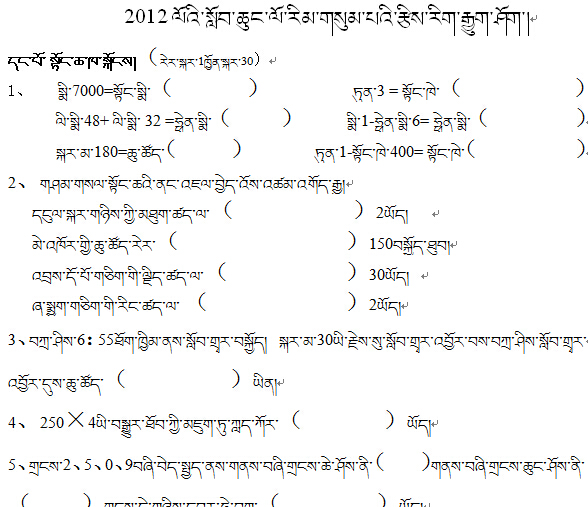 2012 ལོའི་སློབ་ཆུང་ལོ་རིམ་གསུམ་པའི་རྩིས་རིག་རྒྱུག་ཤོག །
དང་པོ་ སྟོང་ཆ་ཁ་སྐོངས། (རེར་སྐར་1ཁྱོན་སྐར་30)
1、 སྨི་7000=སྟོང་སྨི་ ( ) ཏྲན་3 = སྟོང་ཁེ་ ( )
ལི་སྨི་48+ ལི་སྨི་ 32 =ཧྥེན་སྨི་ ( ) སྨི་1-ཧྥེན་སྨི་6= ཧྥེན་སྨི་( )
སྐར་མ་180=ཆུ་ཚོད་( ) ཏྲན་1-སྟོང་ཁེ་400= སྟོང་ཁེ་( )
2、 གཤམ་གསལ་སྟོང་ཆའི་ནང་འཇལ་བྱེད་འོས་འཚམ་འགོད་རྒྱུ།
དངུལ་སྐར་གཉིས་ཀྱི་མཐུག་ཚད་ལ་ ( ) 2ཡོད།
མེ་འཁོར་གྱི་ཆུ་ཚོད་རེར་ ( ) 150བསྐྱོད་ཐུབ།
འབྲས་དོ་པོ་གཅིག་གི་ལྗིད་ཚད་ལ་ ( ) 30ཡོད།
ཞ་སྨྱུག་གཅིག་གི་རིང་ཚད་ལ་ ( ) 2ཡོད།
3、བཀྲ་ཤིས་6：55ཐོག་ཁྱིམ་ནས་སློབ་གྲྭར་བསྐྱོད། སྐར་མ་30ཡི་རྗེས་སུ་སློབ་གྲྭར་འབྱོར་བས་བཀྲ་ཤིས་སློབ་གྲྭར་
འབྱོར་དུས་ཆུ་ཚོད་ ( ) ཡིན།
4、 250×4ཡི་བསྒྱུར་ཐོབ་ཀྱི་མཇུག་ཏུ་ཀླད་ཀོར་ ( ) ཡོད།
5、གྲངས་2、5、0、9བཞི་བེད་སྤྱད་ནས་གནས་བཞི་གྲངས་ཆེ་ཤོས་ནི་( )གནས་བཞི་གྲངས་ཆུང་ཤོས་ནི་